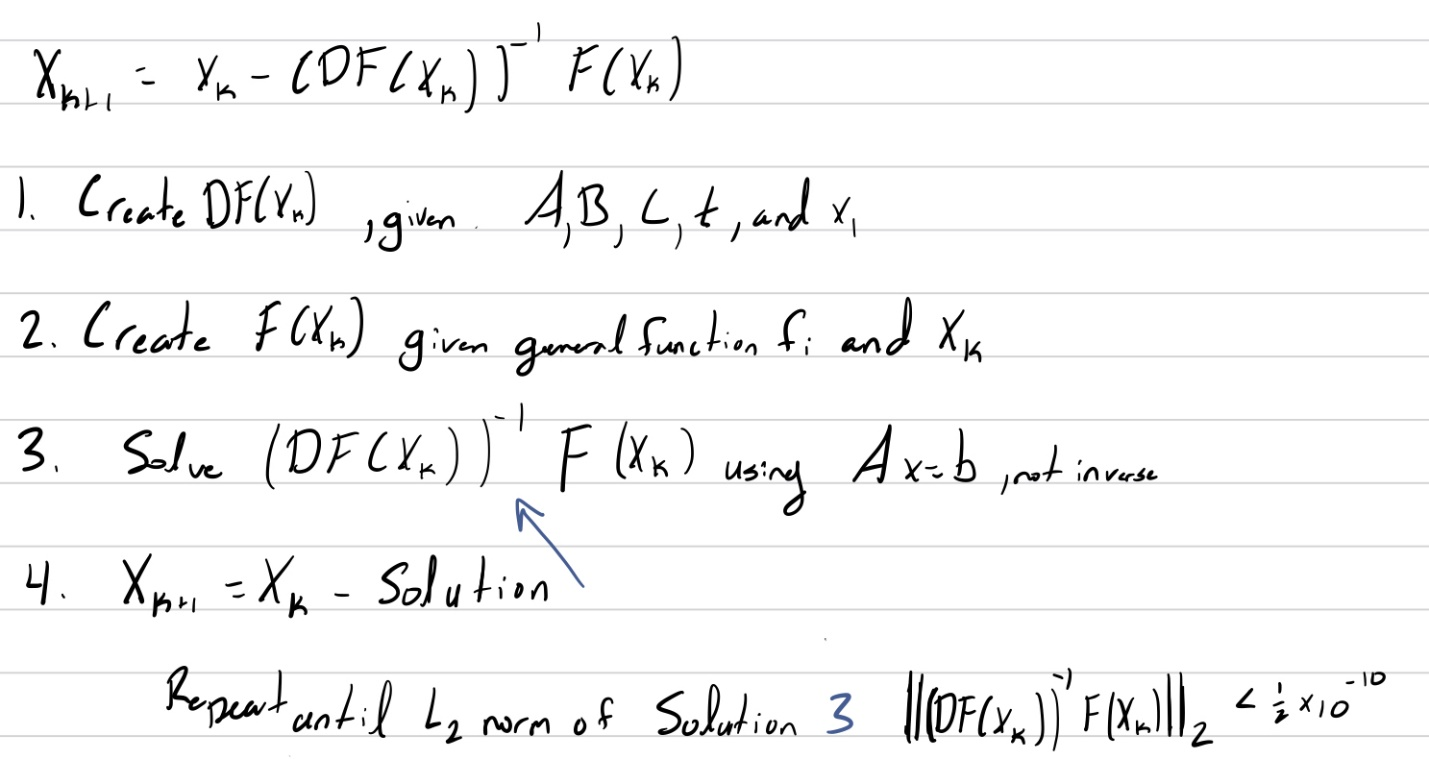 X_{k+1} = X_k - (DF(X_k))^{-1} F(X_k)
1. Create DF(X_k), given A, B, C, t, and x_1
2. Create F(X_k) given general function f_i and X_k
3. Solve (DF(X_k))^{-1} F(X_k) using Ax=b, not inverse
4. X_{k+1} = X_k - Solution
Repeat until L_2 norm of Solution 3 ||(DF(X_k))^{-1} F(X_k)||_2 < 1/2 × 10^{-10}